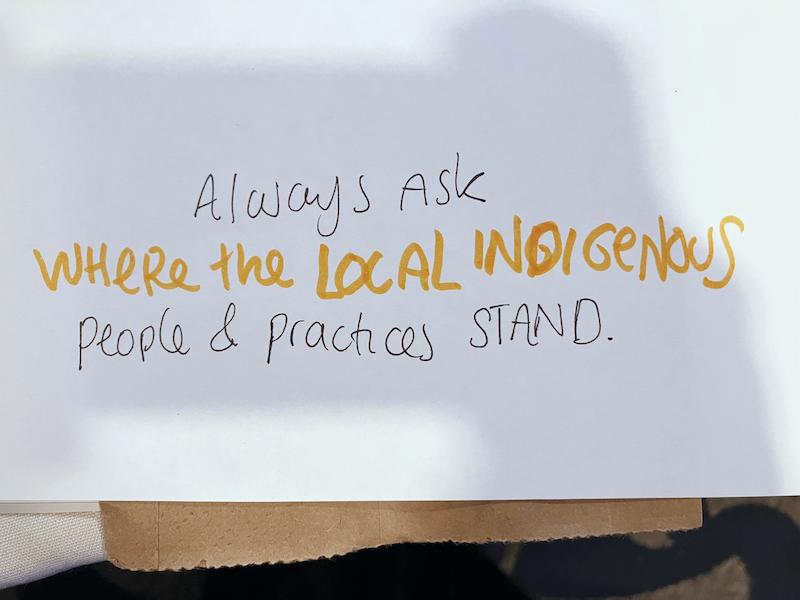 Always Ask
WHERe the LOCAL INDIGeNOUS
people & practices STAND.